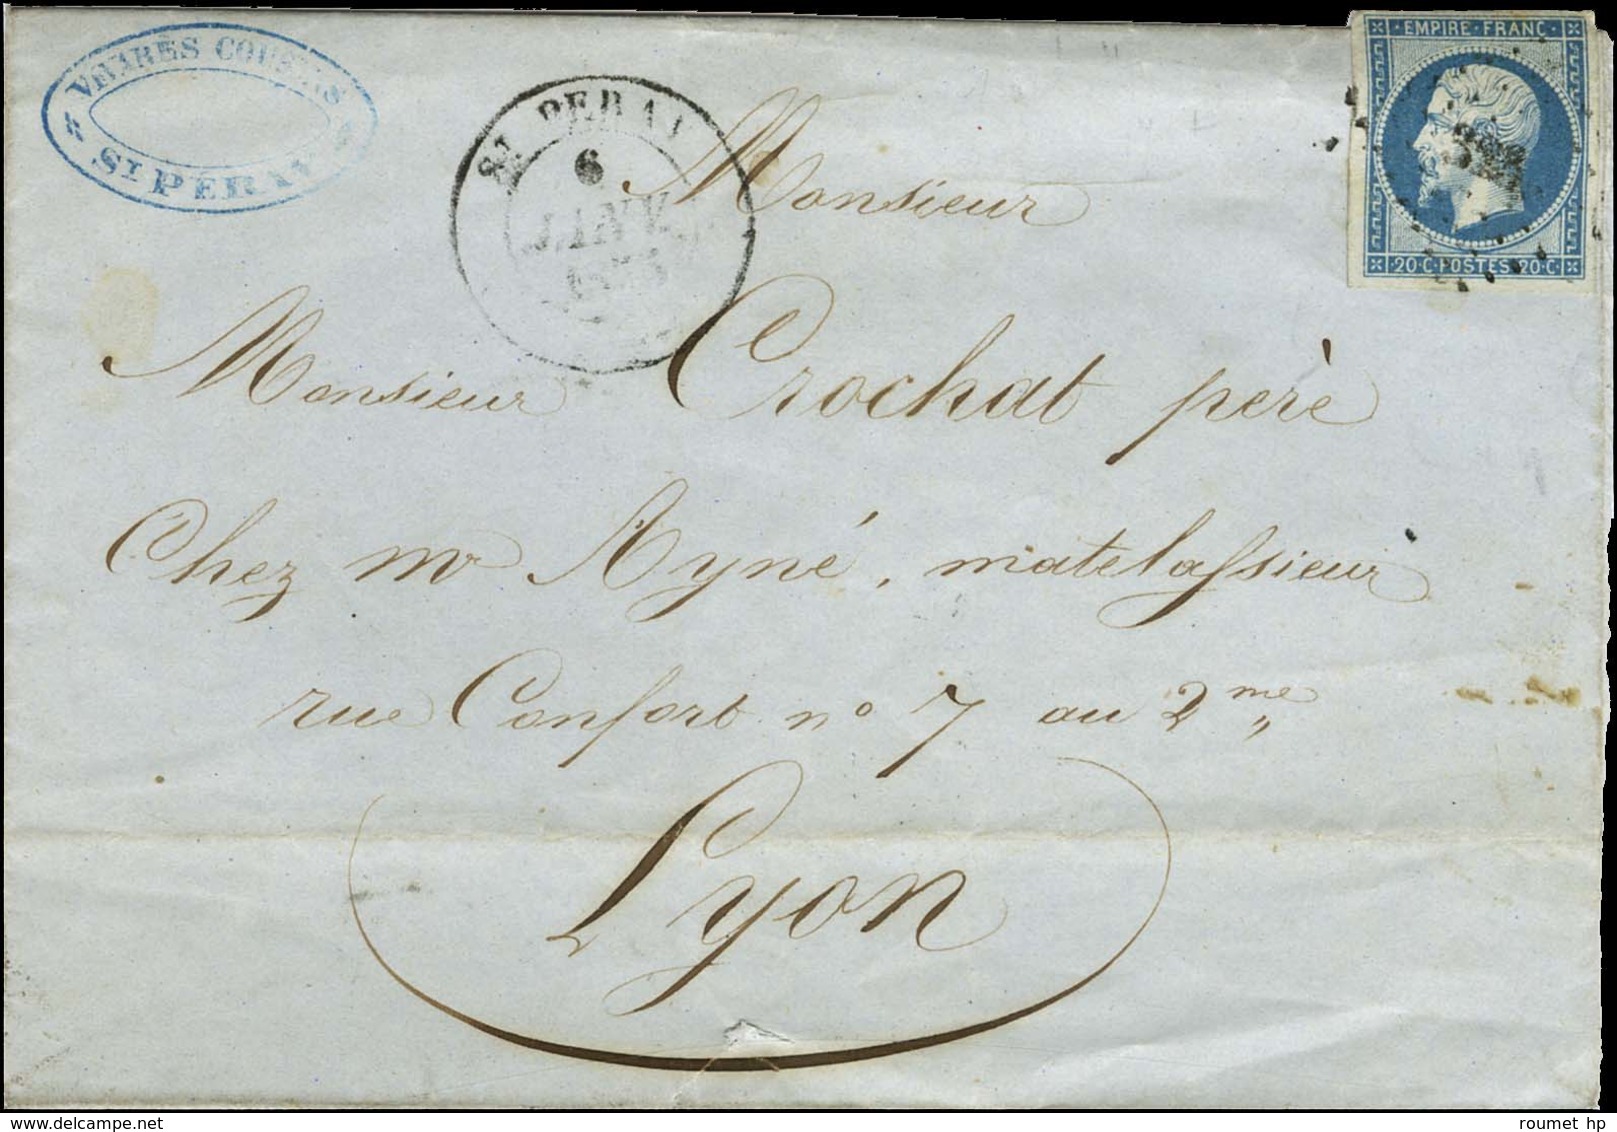 VIVARÈS COUSINS
ST PÉRAY
ST PERAY
6
JANV.
EMPIRE · FRANC ·
20 · C · POSTES · 20 · C ·
Monsieur
Monsieur Crochat père
Chez mr Ayné, matelassieur
rue Confort no 7 au 2me
Lyon
roumet hp